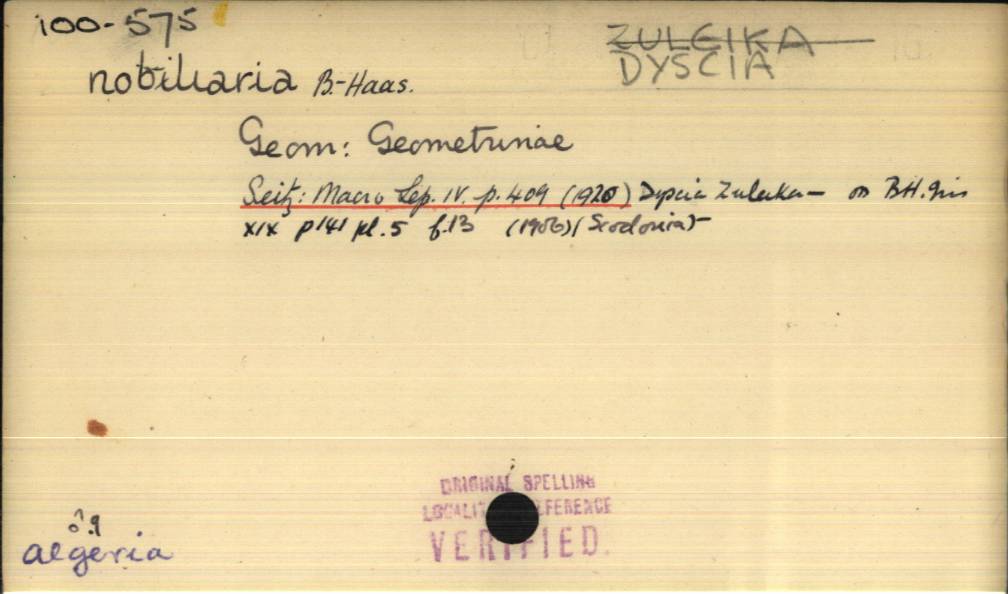 100-575
ZULEIKA
DYSCIA
nobiliaria B.-Haas.
Geom: Geometrinae
Seitz: Macro Lep. IV. p. 409 (1920) Dyscia Zuleika — BH. Iris
XIX p141 pl. 5 f.13 (1906) (Scodonia) -
ORIGINAL SPELLING
LOCALIT EFERENCE
VERIFIED.
♂.♀
algeria